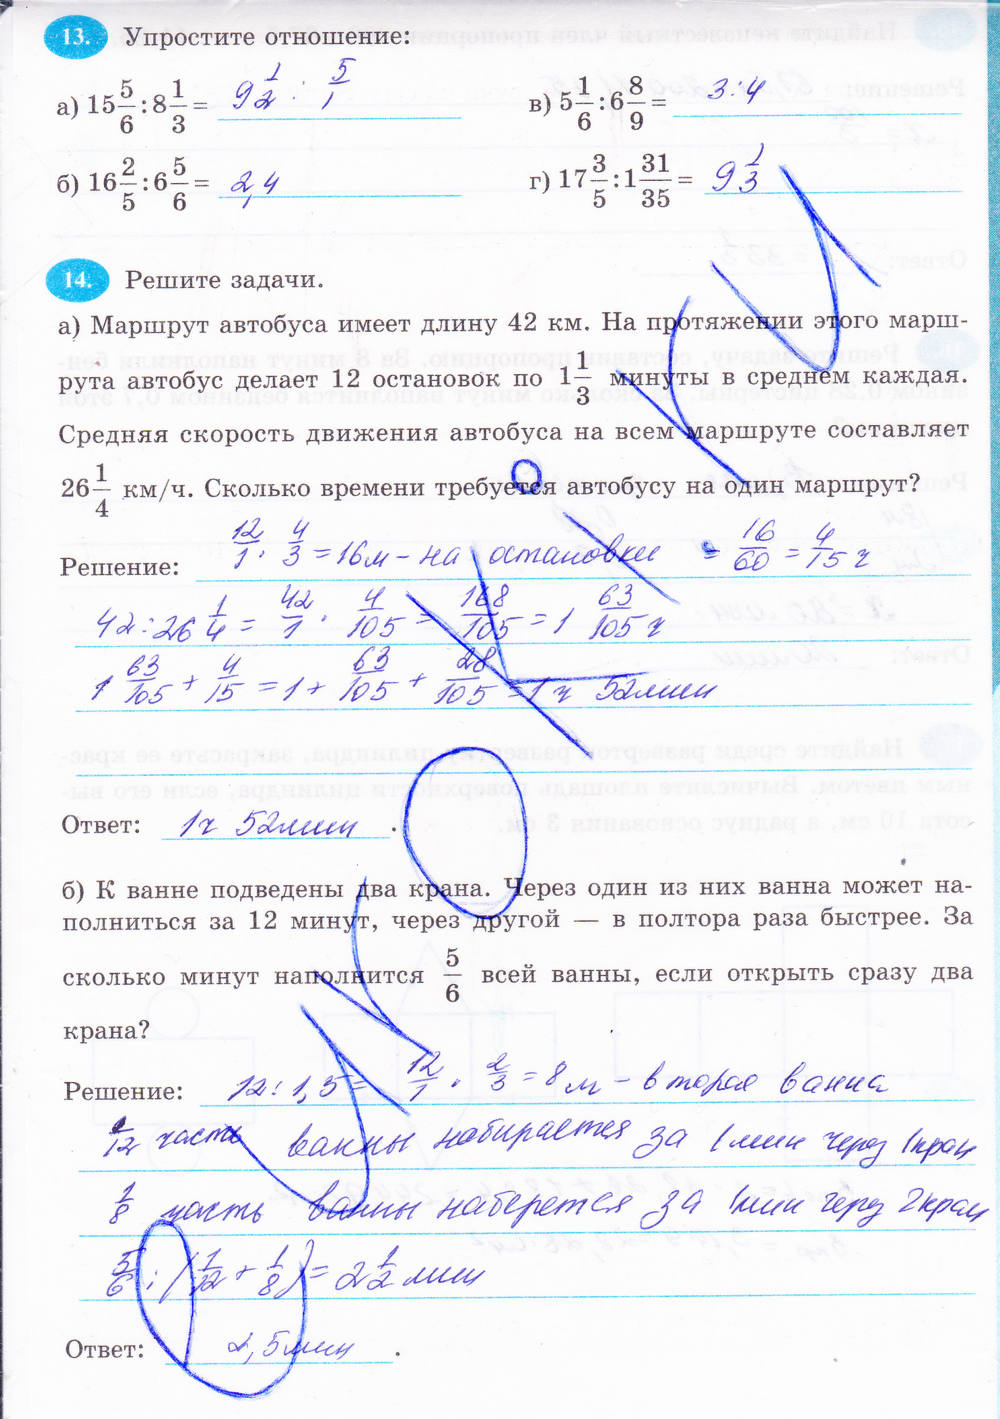 13. Упростите отношение:
а) 15 5/6 : 8 1/3 = 9 1/2 : 5/1
в) 5 1/6 : 6 8/9 = 3:4
б) 16 2/5 : 6 5/6 = 2,4
г) 17 3/5 : 1 31/35 = 9 1/3
14. Решите задачи.
а) Маршрут автобуса имеет длину 42 км. На протяжении этого марш-
рута автобус делает 12 остановок по 1 1/3 минуты в среднем каждая.
Средняя скорость движения автобуса на всем маршруте составляет
26 1/4 км/ч. Сколько времени требуется автобусу на один маршрут?
Решение: 12/1 · 4/3 = 16м – на остановки = 16/60 = 4/15 ч
42 : 26 1/4 = 42/1 · 4/105 = 168/105 = 1 63/105 ч
1 63/105 + 4/15 = 1 + 63/105 + 28/105 = 1ч 52мин
Ответ: 1ч 52мин .
б) К ванне подведены два крана. Через один из них ванна может на-
полниться за 12 минут, через другой — в полтора раза быстрее. За
сколько минут наполнится 5/6 всей ванны, если открыть сразу два
крана?
Решение: 12 : 1,5 = 12/1 · 2/3 = 8м – вторая ванна
1/12 часть ванны набирается за 1 мин через 1 кран
1/8 часть ванны наберется за 1 мин через 2 кран
5/6 : (1/12 + 1/8) = 2 1/2 мин
Ответ: 2,5мин .